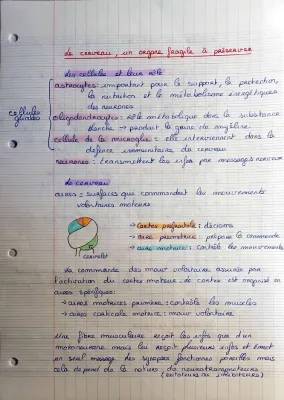 Le cerveau, un organe fragile à préserver
Les cellules et leur rôle
astrocytes: important pour le support, la protection,
la nutrition et le métabolisme énergétiques
des neurones
cellules
gliales
oligodendrocytes: rôle métabolique dans la substance
blanche → produit la gaine de myéline
cellule de la microglie: elle interviennent dans la
défense immunitaire du cerveau
neurones: transmettent les infos par messages nerveux
Le cerveau
aires = surfaces que commandent les mouvements
volontaires moteurs
→ Cortex préfrontale: décisions
→ aire prémotrice: prépare la commande
→ aire motrice: contrôle les mouvements
cervelet
La commande des mouv volontaire assurée par
l'activation du cortex moteur: ce cortex est organisé en
aires spécifiques:
→ aires motrices primaire: contrôle les muscles
→ aires corticale motrice: mouv volontaire
Une fibre musculaire reçoit les infos que d'un
motoneurone mais lui reçoit plusieurs infos et émet
un seul message des synapses fonctionnes pareilles mais
cela dépend de la nature du neurotransmetteurs
(excitateurs ou inhibiteurs)